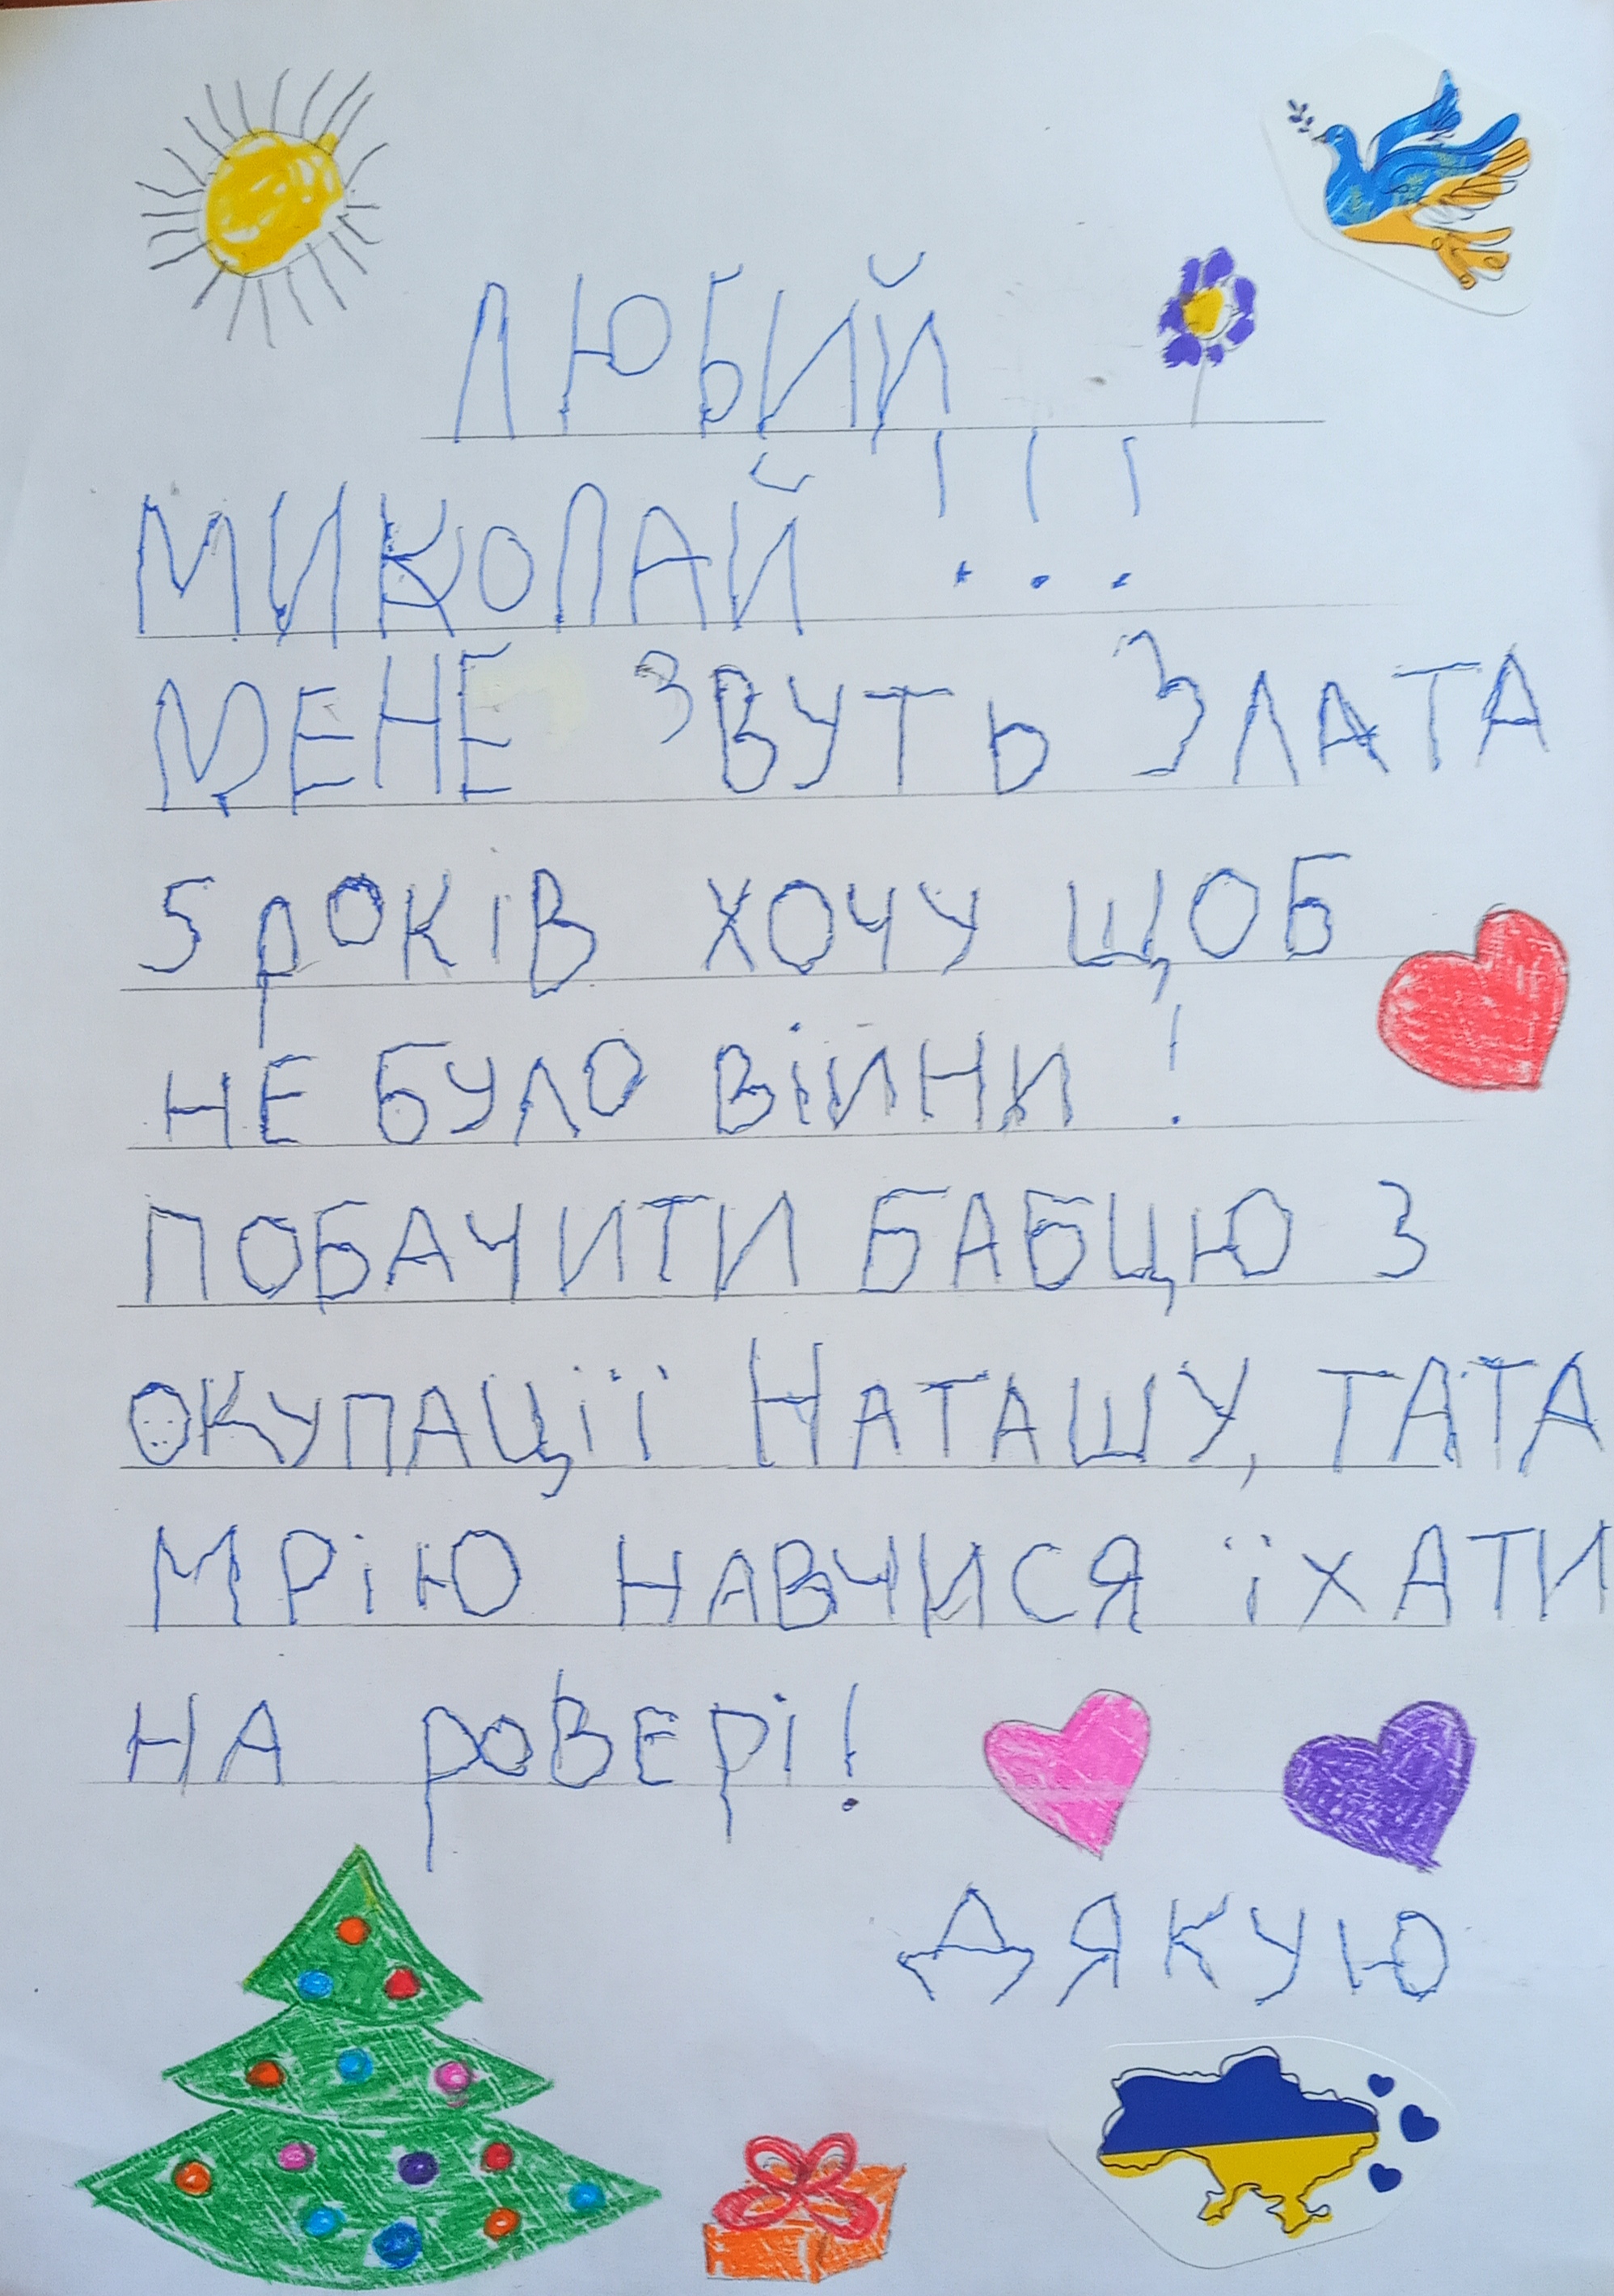 ЛЮБИЙ
МИКОЛАЙ !!!
МЕНЕ ЗВУТЬ ЗЛАТА
5 РОКІВ ХОЧУ ЩОБ
НЕ БУЛО ВІЙНИ !
ПОБАЧИТИ БАБЦЮ З
ОКУПАЦІЇ НАТАШУ, ТАТА
МРІЮ НАВЧИСЯ ЇХАТИ
НА РОВЕРІ!
ДЯКУЮ